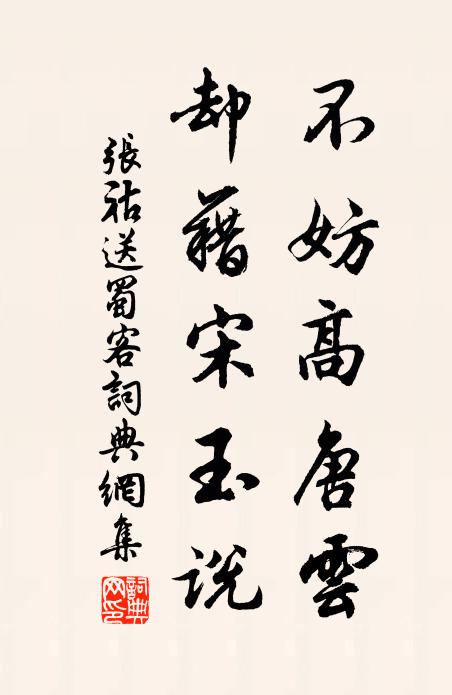 不妨高唐雲
却藉宋玉說
張祜送蜀客詞典網集
詞典网印